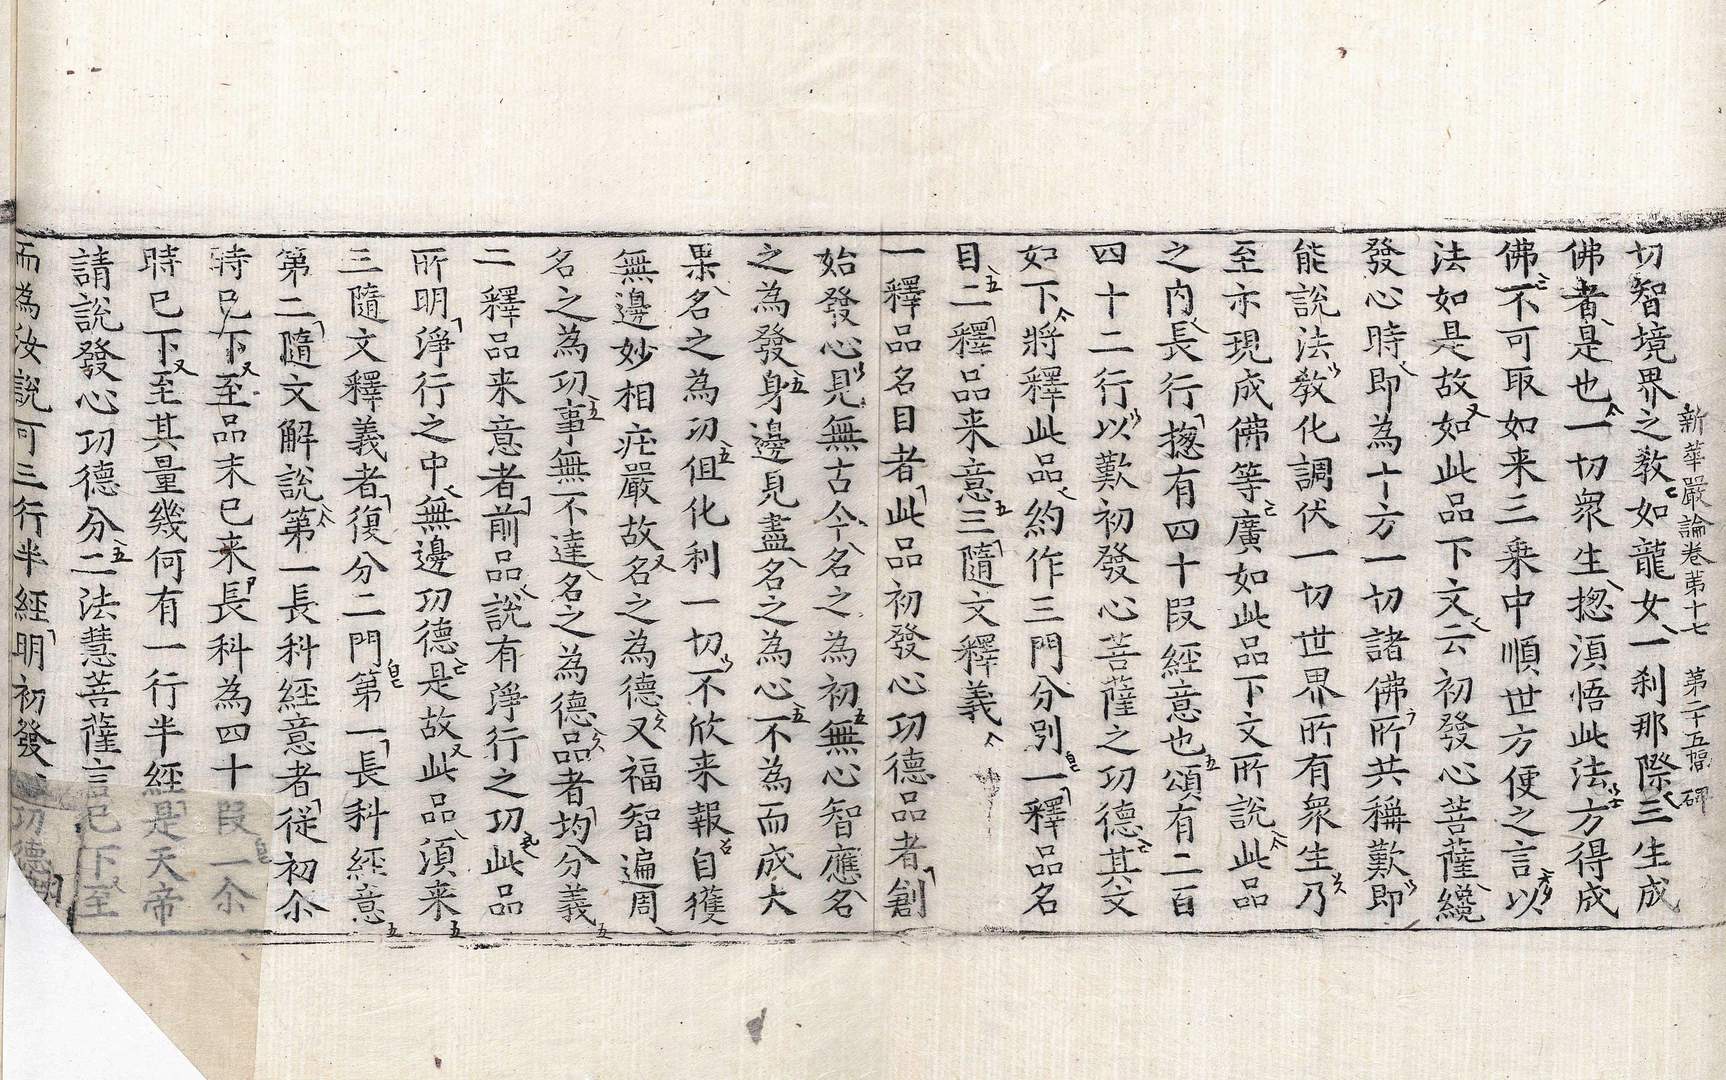 新華嚴論卷第十七 第二十五幅 碑
切智境界之教如龍女一刹那際三生成
佛者是也一切衆生揔湏悟此法方得成
佛不可取如来三乘中順世方便之言以
法如是故如此品下文云初發心菩薩纔
發心時即為十方一切諸佛所共稱歎即
能說法教化調伏一切世界所有衆生乃
至亦現成佛等廣如此品下文所說此品
之内長行揔有四十段經意也頌有二百
四十二行以歎初發心菩薩之功德其文
如下將釋此品約作三門分別一釋品名
目二釋品来意三隨文釋義
一釋品名目者此品初發心功德品者創
始發心見無古今名之為初無心智應名
之為發身邊見盡名之為心不為而成大
果名之為功但化利一切不欣来報自獲
無邊妙相莊嚴故名之為德又福智遍周
名之為功事無不達名之為德品者均分義
二釋品来意者前品說有淨行之功此品
所明淨行之中無邊功德是故此品湏来
三隨文釋義者復分二門第一長科經意
第二隨文解說第一長科經意者從初尒
時已下至品末已来長科為四十段一尒
時已下至其量幾何有一行半經是天帝
請說發心功德分二法慧菩薩言已下至
而為汝說可三行半經明初發心功德